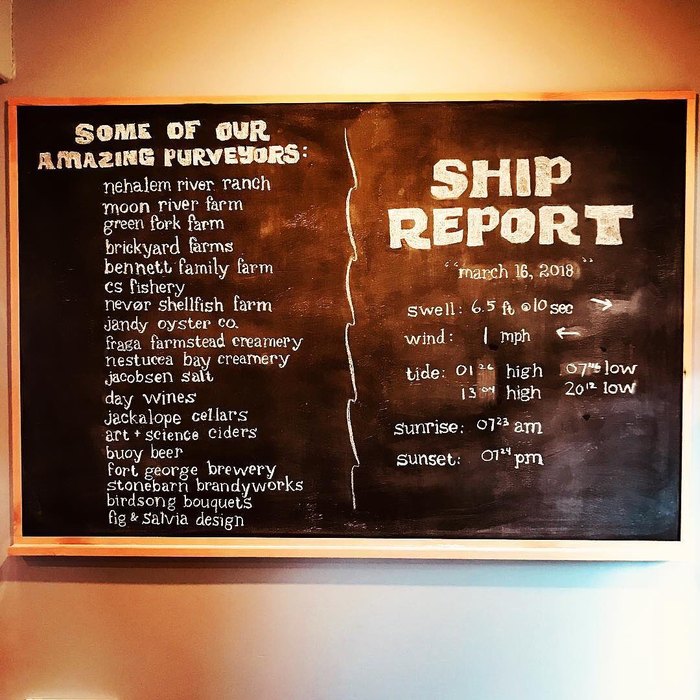 SOME OF OUR
AMAZING PURVEYORS:
nehalem river ranch
moon river farm
green fork farm
brickyard farms
bennett family farm
cs fishery
nevør shellfish farm
jandy oyster co.
fraga farmstead creamery
nestucca bay creamery
jacobsen salt
day wines
jackalope cellars
art + science ciders
buoy beer
fort george brewery
stonebarn brandyworks
birdsong bouquets
fig & salvia design
SHIP
REPORT
"march 16, 2018"
swell: 6.5 ft @ 10 sec →
wind: 1 mph ←
tide: 01 26 high 07 46 low
13 04 high 20 12 low
sunrise: 07 23 am
sunset: 07 24 pm